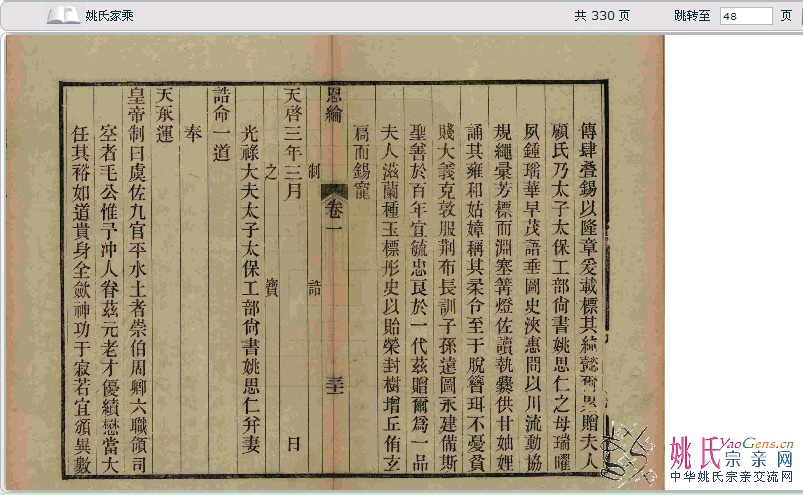 姚氏家乘 共 330 页 跳转至 48 页
傳肆叠錫以隆章爰載標其純懿爾累贈夫人
顧氏乃太子太保工部尚書姚思仁之母瑞曜
夙鍾瑤華早茂語垂圖史浹惠問以川流動協
規繩彙芳標而淵塞篝燈佐讀執爨供甘妯娌
誦其雍和姑嫜稱其柔令至于脫簪珥不憂貧
賤大義克敦服荆布長訓子孫遠圖永建備斯
聖善於百年宜毓忠良於一代茲贈爾爲一品
夫人滋蘭種玉標彤史以貽榮封樹增丘侑玄
扃而錫寵
恩綸 卷一
制誥
天啓三年三月 日
之寶
光祿大夫太子太保工部尚書姚思仁并妻
誥命一道
奉
天承運
皇帝制曰虞佐九官平水土者崇伯周卿六職領司
空者毛公惟予冲人眷茲元老才優績懋當大
任其裕如道貴身全斂神功于寂若宜頒異數
姚氏 YaoGens.cn
宗亲网
中华姚氏宗亲交流网